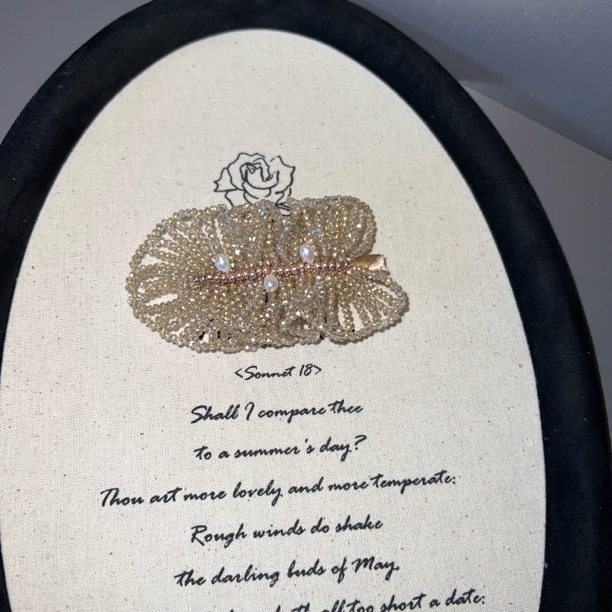 <Sonnet 18>
Shall I compare thee
to a summer's day?
Thou art more lovely and more temperate:
Rough winds do shake
the darling buds of May,
all too short a date: